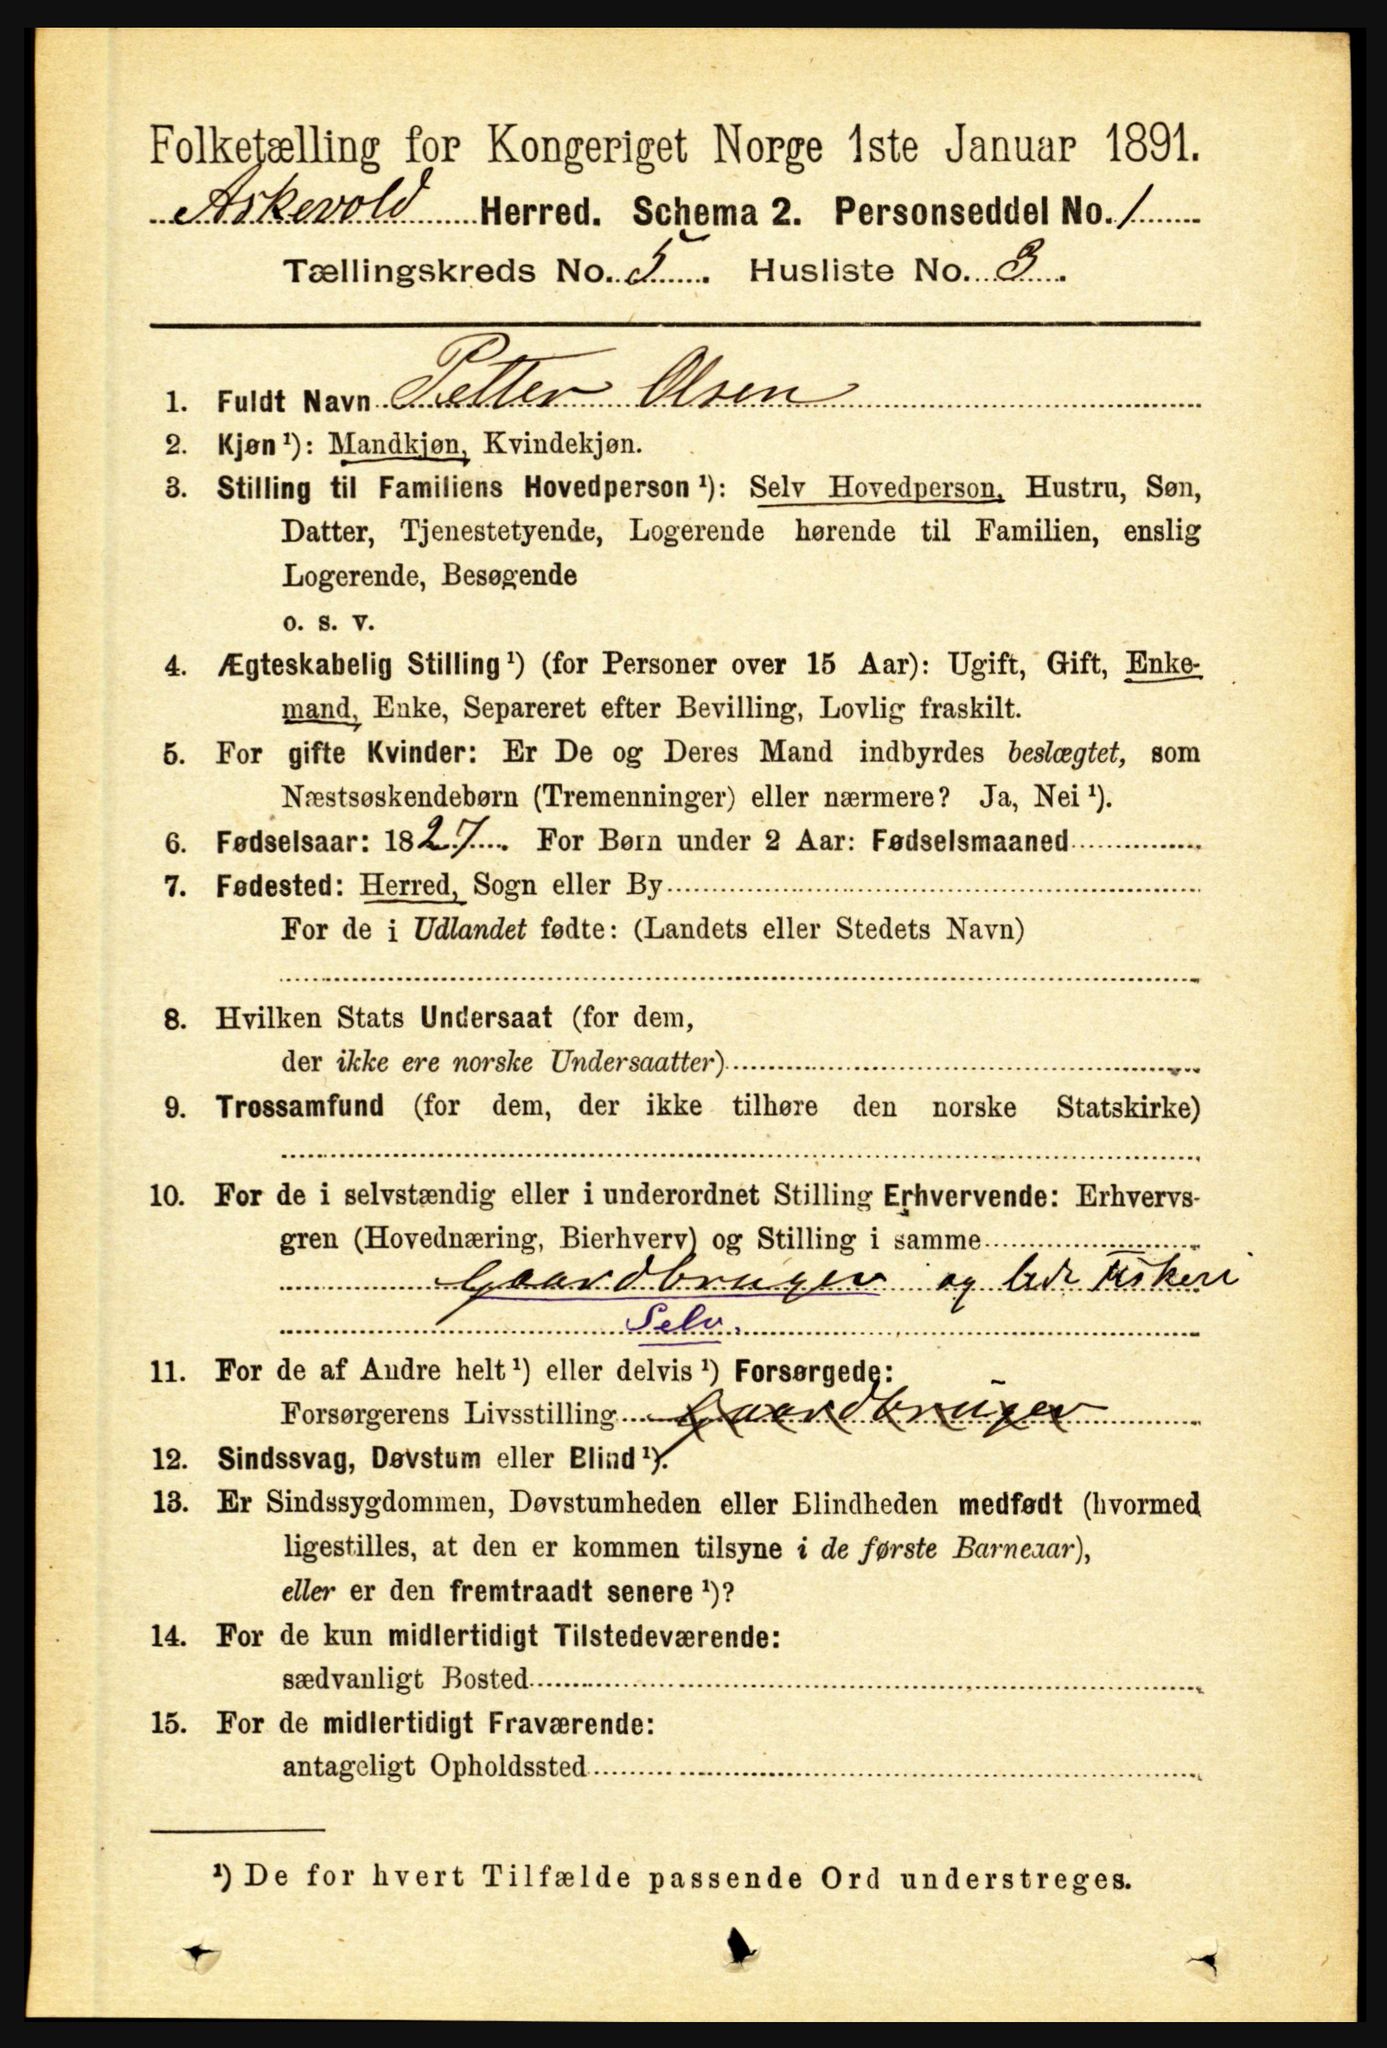 Folketælling for Kongeriget Norge 1ste Januar 1891.
Askevold Herred. Schema 2. Personseddel No. 1
Tællingskreds No. 5. Husliste No. 3.
1. Fuldt Navn Petter Olsen
2. Kjøn ¹): Mandkjøn, Kvindekjøn.
3. Stilling til Familiens Hovedperson ¹): Selv Hovedperson, Hustru, Søn,
Datter, Tjenestetyende, Logerende hørende til Familien, enslig
Logerende, Besøgende
o. s. v.
4. Ægteskabelig Stilling ¹) (for Personer over 15 Aar): Ugift, Gift, Enke-
mand, Enke, Separeret efter Bevilling, Lovlig fraskilt.
5. For gifte Kvinder: Er De og Deres Mand indbyrdes beslægtet, som
Næstsøskendebørn (Tremenninger) eller nærmere? Ja, Nei ¹).
6. Fødselsaar: 1827. For Børn under 2 Aar: Fødselsmaaned
7. Fødested: Herred, Sogn eller By
For de i Udlandet fødte: (Landets eller Stedets Navn)
8. Hvilken Stats Undersaat (for dem,
der ikke ere norske Undersaatter)
9. Trossamfund (for dem, der ikke tilhøre den norske Statskirke)
10. For de i selvstændig eller i underordnet Stilling Erhvervende: Erhvervs-
gren (Hovednæring, Bierhverv) og Stilling i samme
Gaardbruger og Fiskeri
Selv.
11. For de af Andre helt ¹) eller delvis ¹) Forsørgede:
Forsørgerens Livsstilling Gaardbruger
12. Sindssvag, Døvstum eller Blind ¹).
13. Er Sindssygdommen, Døvstumheden eller Blindheden medfødt (hvormed
ligestilles, at den er kommen tilsyne i de første Barneaar),
eller er den fremtraadt senere ¹)?
14. For de kun midlertidigt Tilstedeværende:
sædvanligt Bosted
15. For de midlertidigt Fraværende:
antageligt Opholdssted
¹) De for hvert Tilfælde passende Ord understreges.